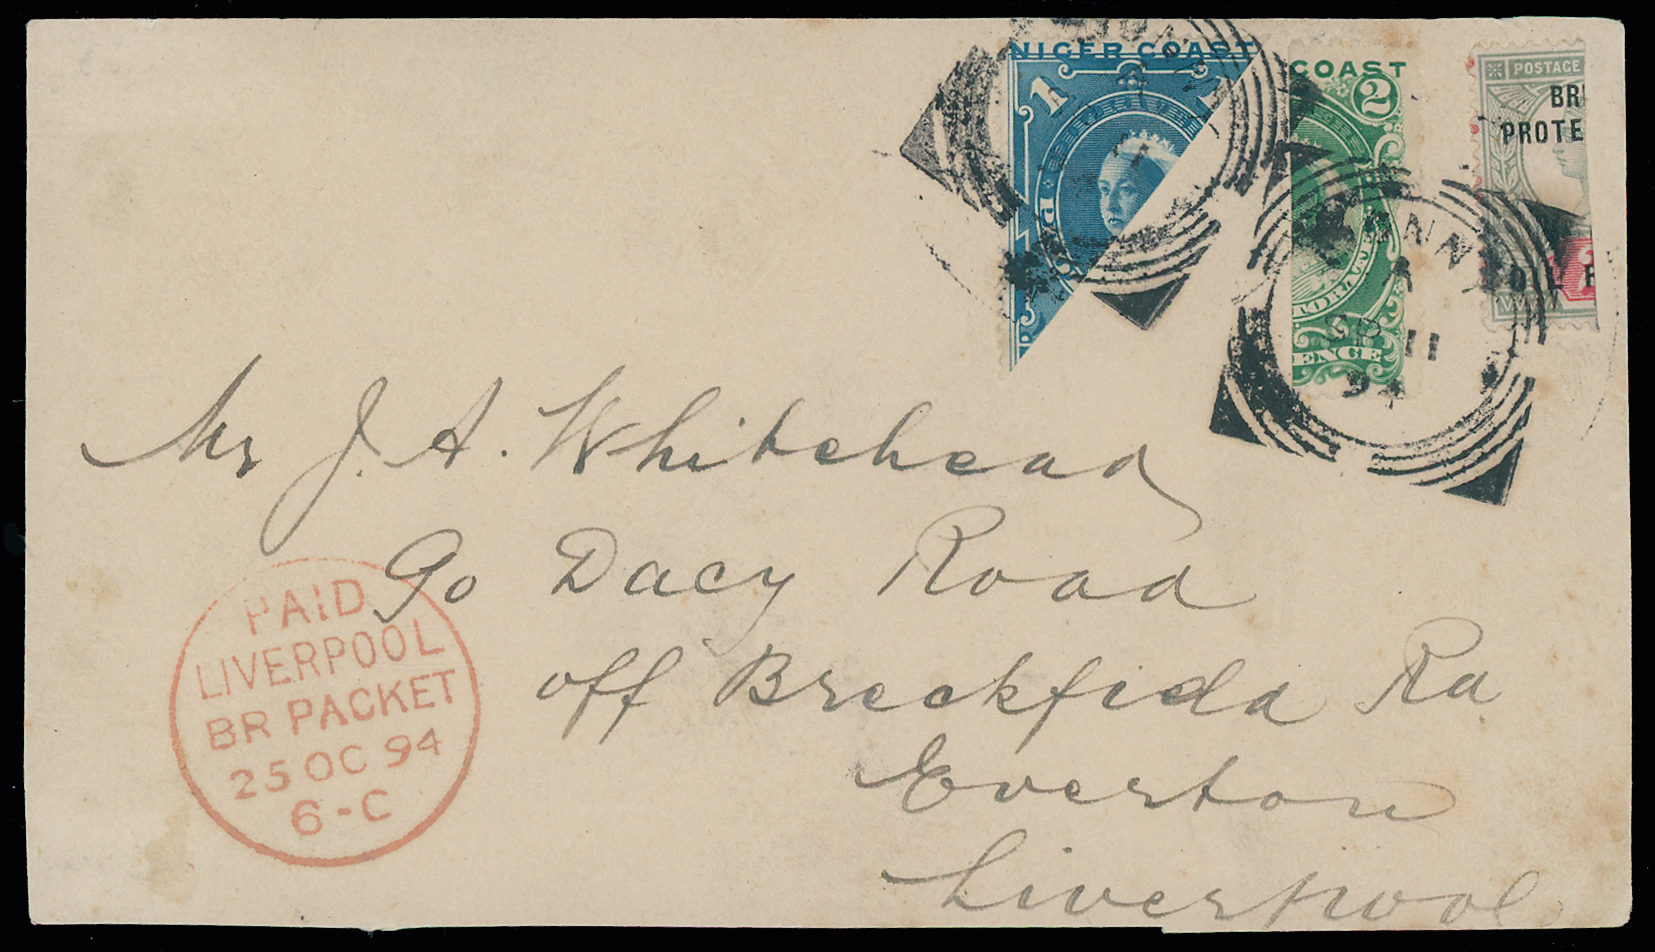 NIGER COAST
1
COAST
2
ENCE
POSTAGE
BRI
PROTE
OIL R
BONNY
A
SP 11
94
Mr J. A. Whitehead
90 Dacy Road
off Breckfield Rd
Everton
Liverpool
PAID
LIVERPOOL
BR PACKET
25 OC 94
6-C